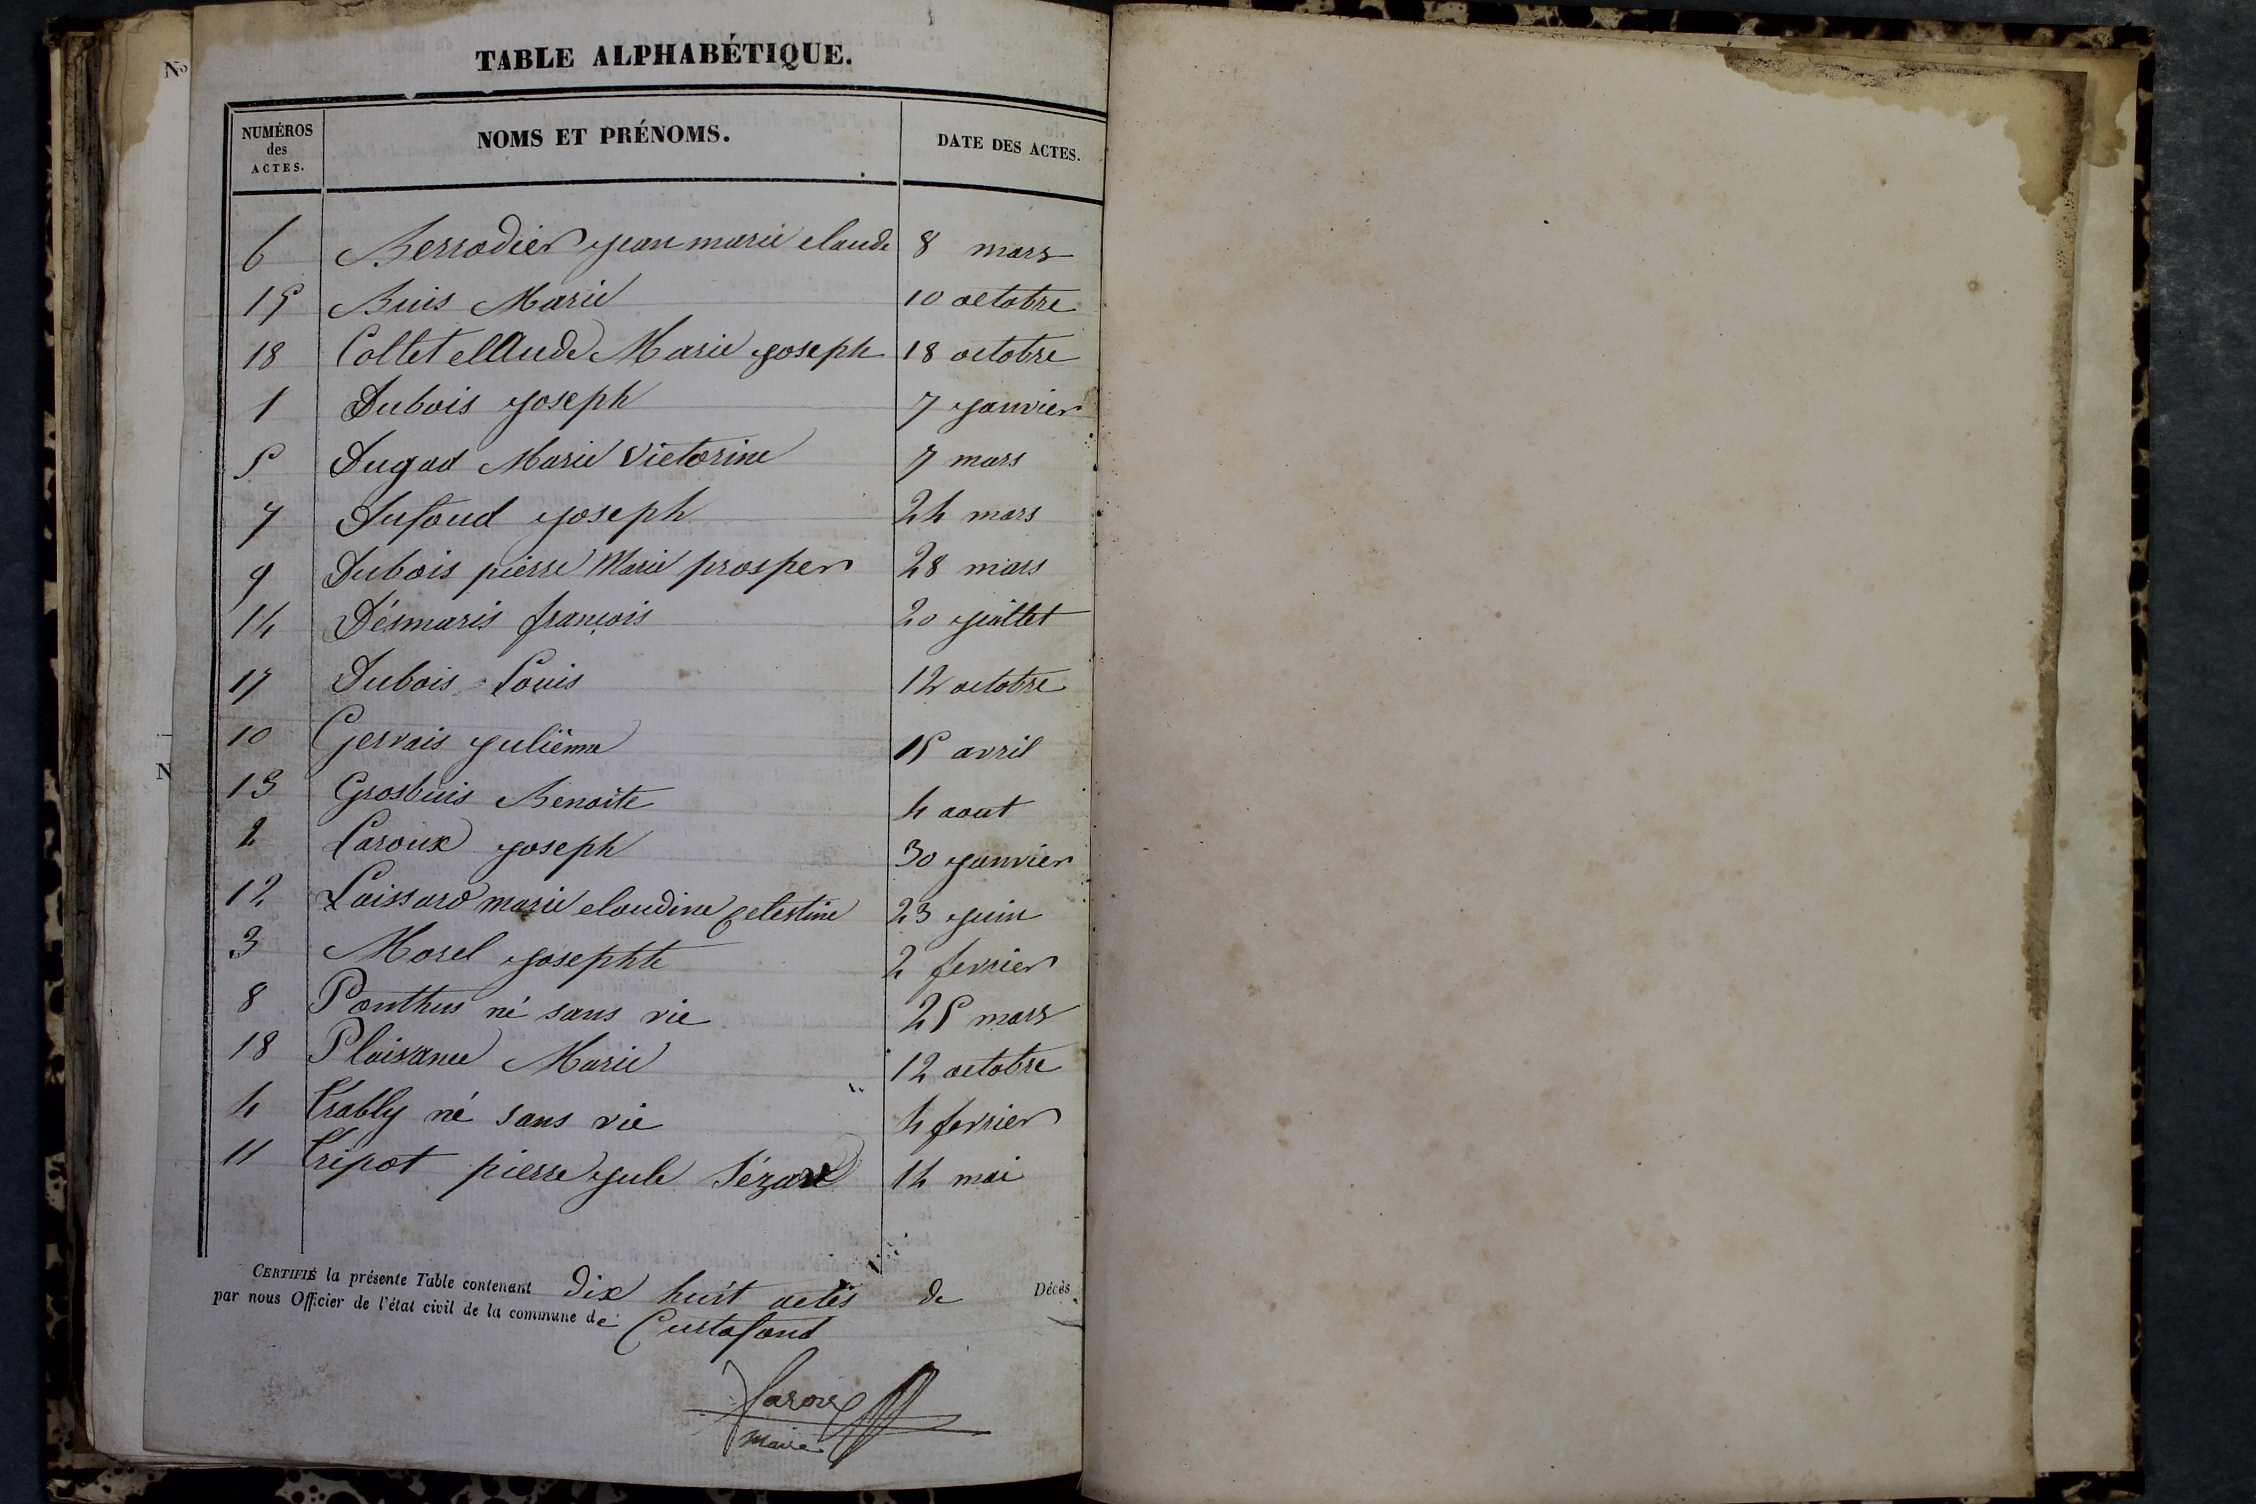 TABLE ALPHABÉTIQUE.
No
NUMÉROS des ACTES. NOMS ET PRÉNOMS. DATE DES ACTES.
6 Berrodier jean marie claude 8 mars
15 Buis Marie 10 octobre
18 Collet claude Marie joseph 18 octobre
1 Dubois joseph 7 janvier
5 Dugad Marie Victorine 7 mars
7 Dufoud joseph 24 mars
9 Dubois pierre Marie prosper 28 mars
14 Désmaris françois 20 juillet
17 Dubois Louis 12 octobre
10 Gervais julienne 15 avril
N
13 Grosbuis Benoite 4 aout
2 Laroux joseph 30 janvier
12 Laissard marie claudine celestine 23 juin
3 Morel josephte 2 fevrier
8 Ponthus né sans vie 25 mars
18 Plaisance Marie 12 octobre
4 Trably né sans vie 4 fevrier
11 Tripot pierre jule 14 mai
CERTIFIÉ la présente Table contenant dix huit actes de Décès
par nous Officier de l'état civil de la commune de Curtafond
Laroux
maire